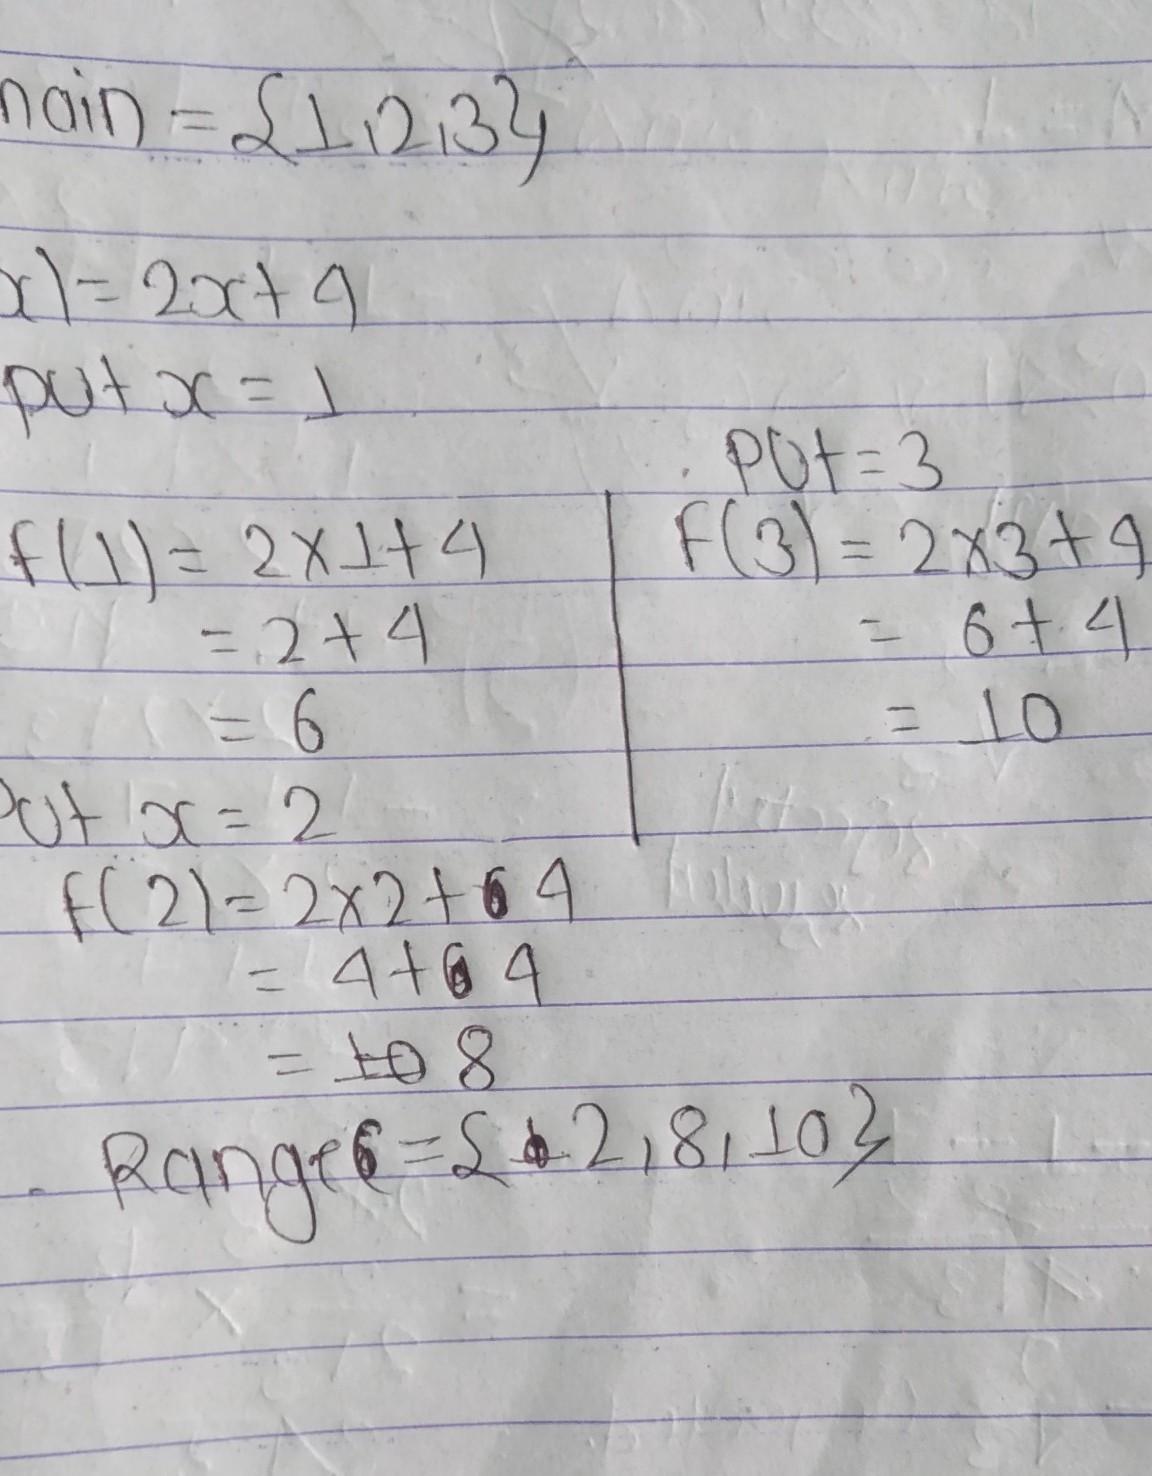 nain = {1,2,3}
x) = 2x+4
put x = 1
f(1) = 2×1+4
= 2+4
= 6
Put x = 2
f(2) = 2×2+ 4
= 4+ 4
= 10 8
Put = 3
f(3) = 2×3+4
= 6+4
= 10
Range = { 2,8,10}